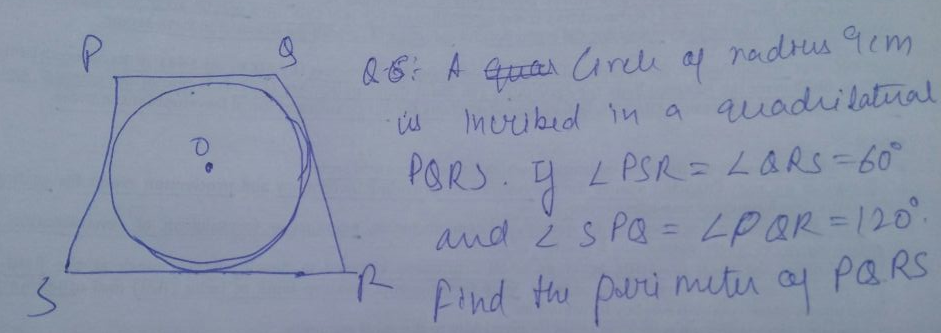 P Q
O
S R
Q6: A Circle of radius 9cm
is incribed in a quadrilatural
PQRS. If ∠PSR = ∠QRS = 60°
and ∠SPQ = ∠PQR = 120°.
Find the peri meter of PQRS